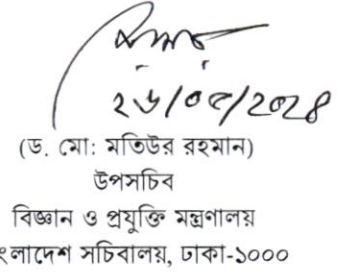 ২৬/০৫/২০২৪
(ড. মো: মতিউর রহমান)
উপসচিব
বিজ্ঞান ও প্রযুক্তি মন্ত্রণালয়
ংলাদেশ সচিবালয়, ঢাকা-১০০০